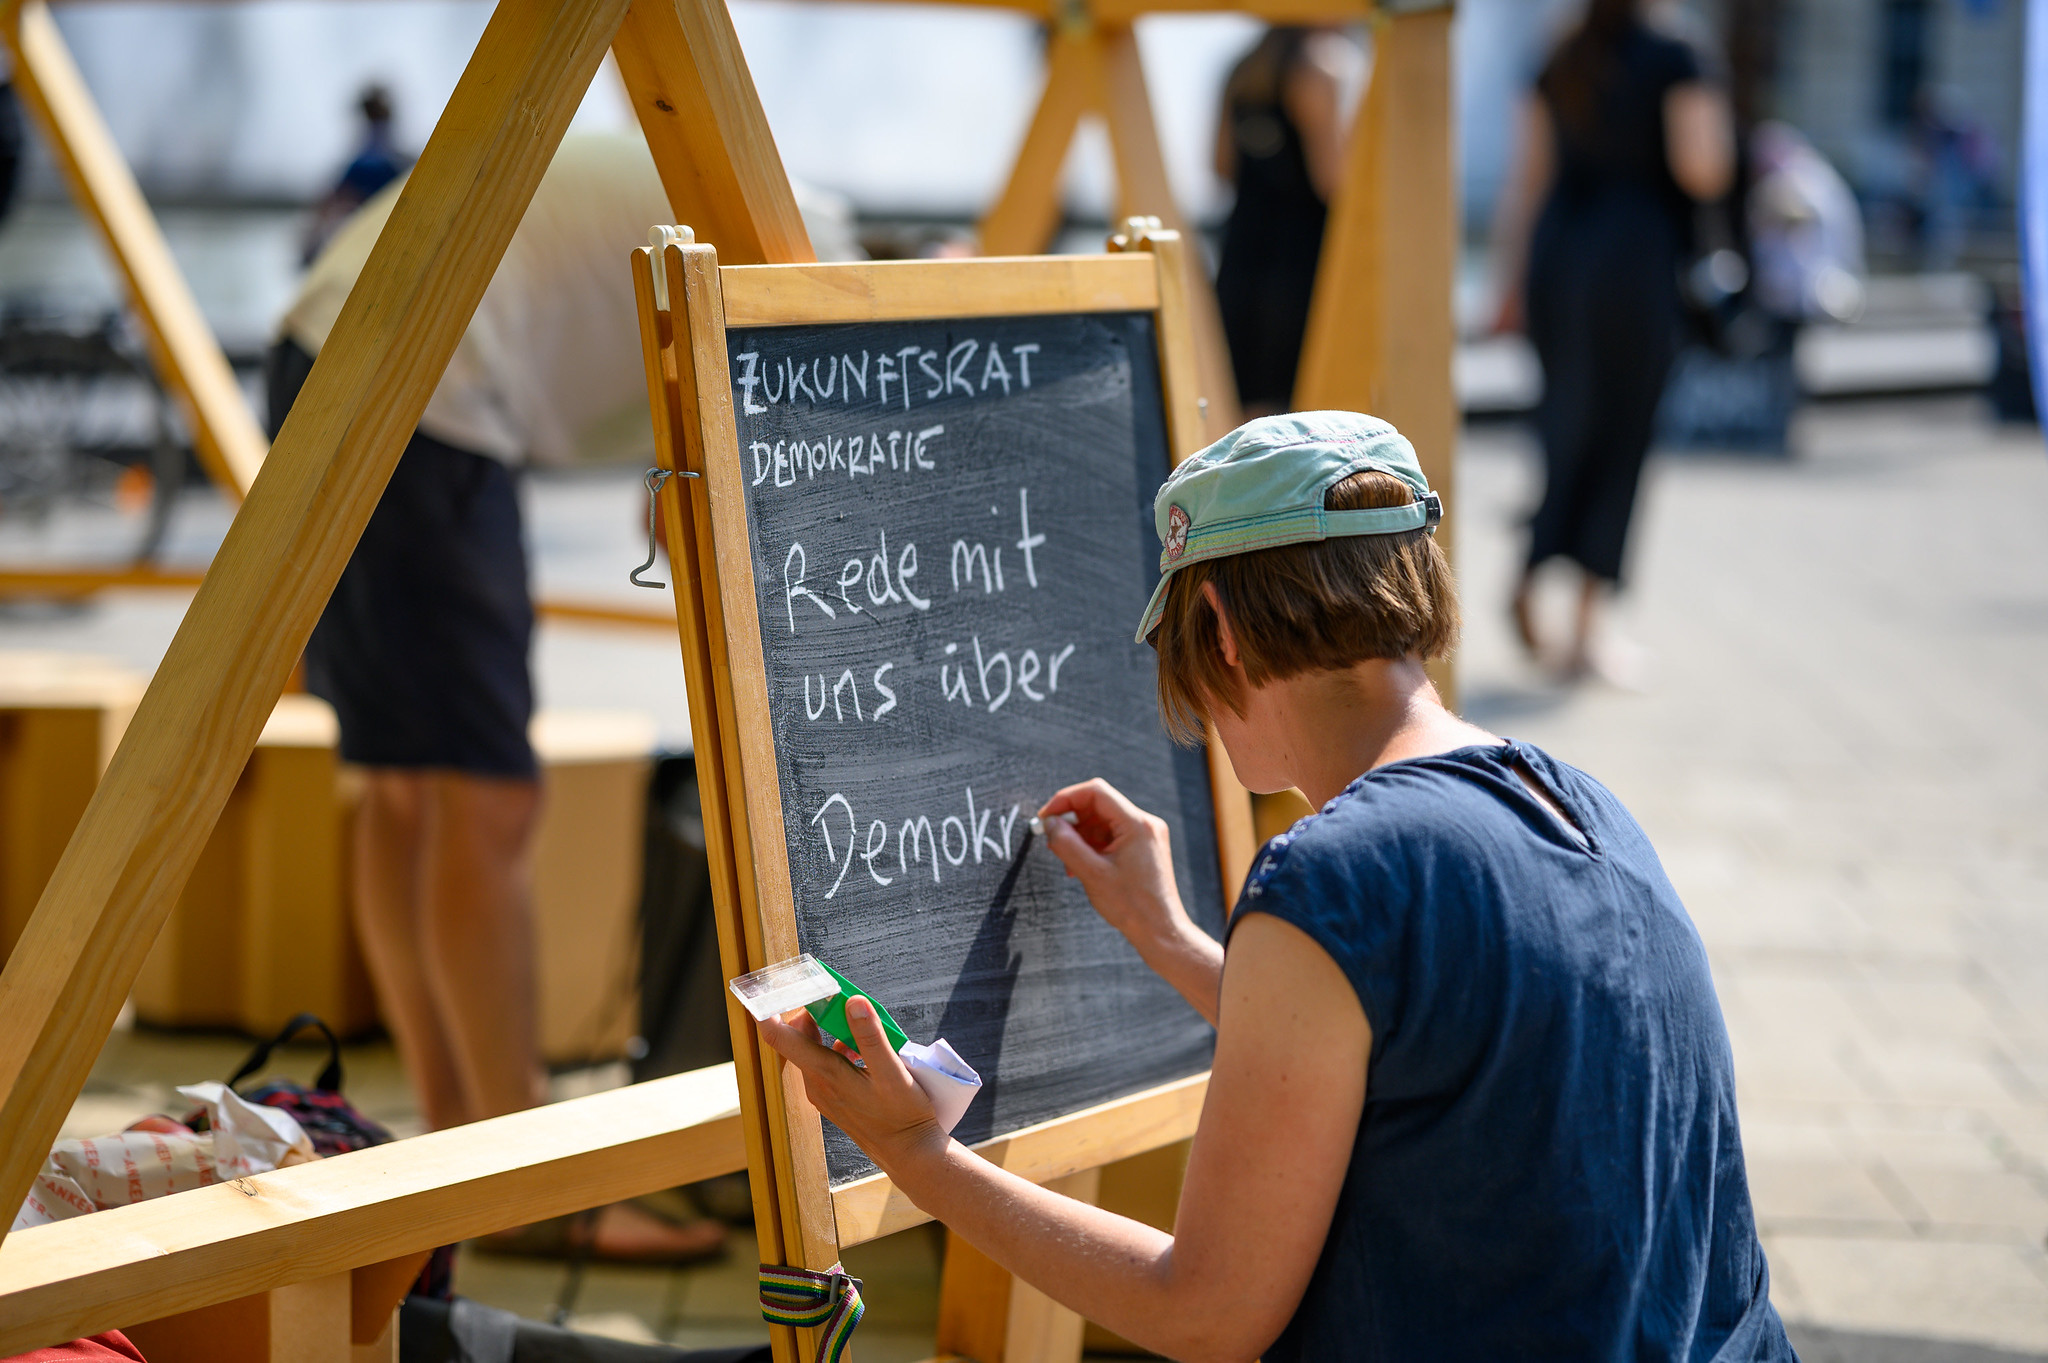 ZUKUNFTSRAT
DEMOKRATIE
Rede mit
uns über
Demokr
ANKER